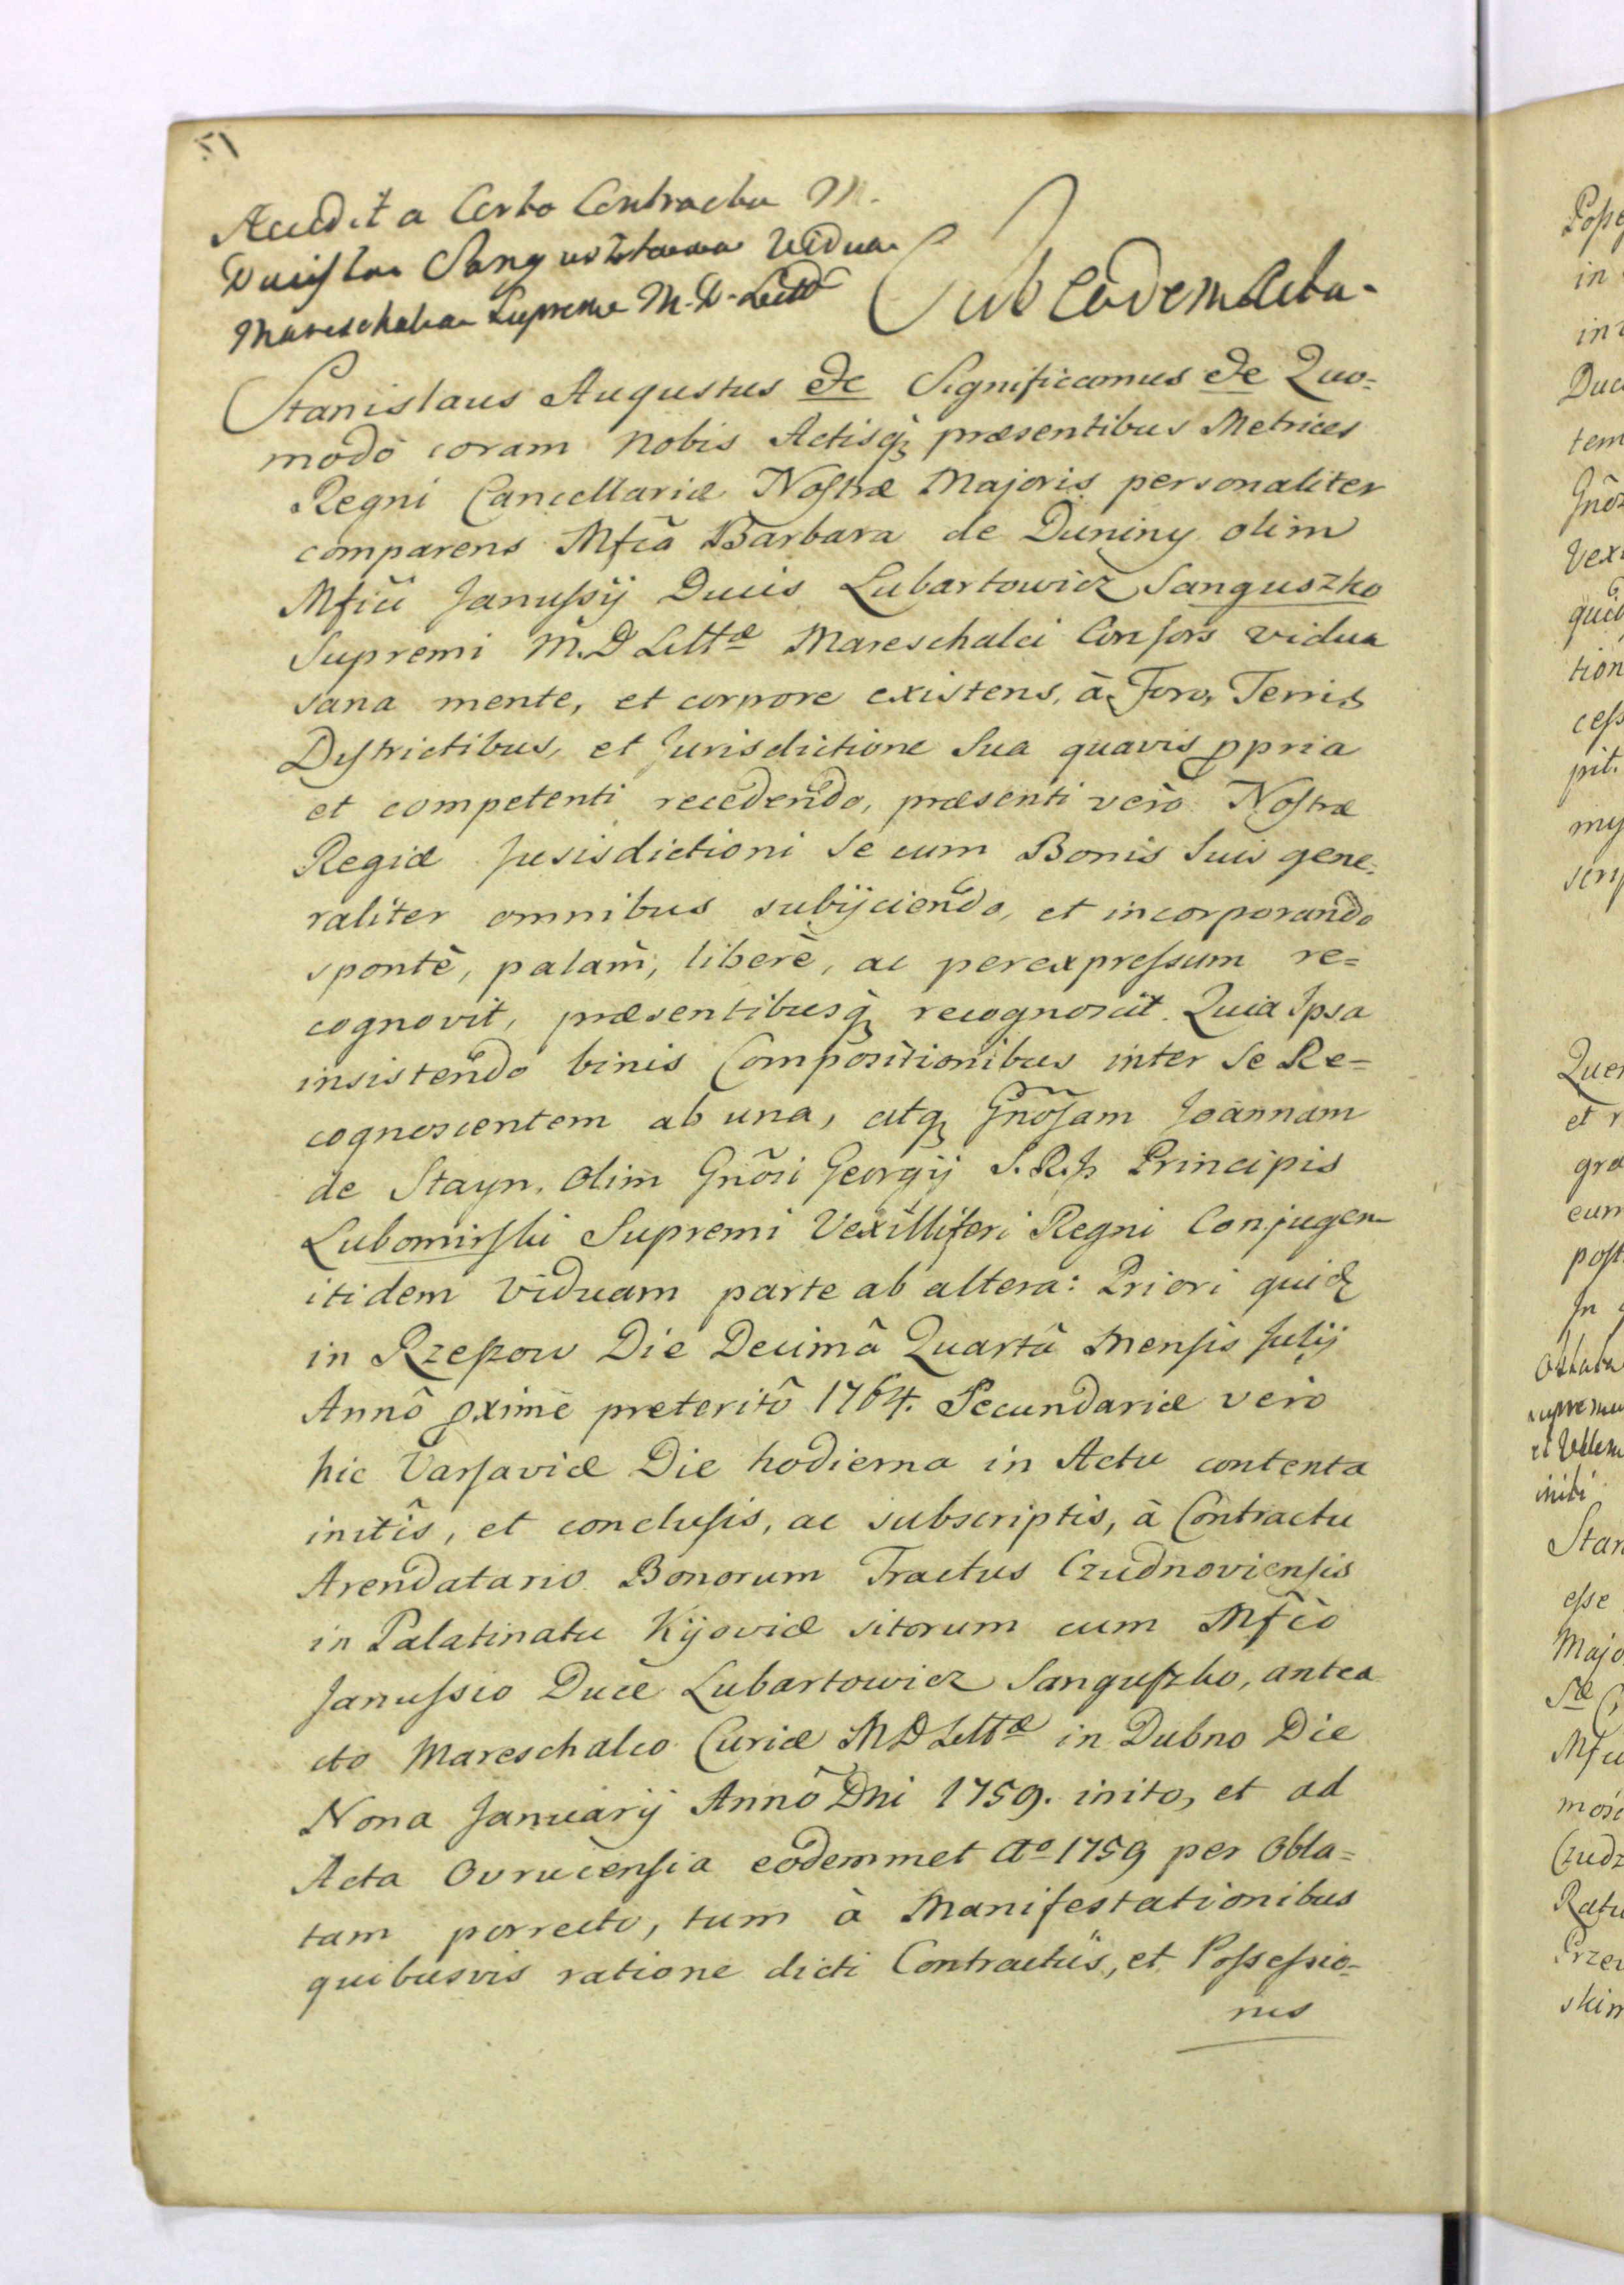 51
Accedit a Certo Contractu M.
Ducissa Sanguszkowa Vidua
Mareschalca Supreme M. D. Litt
Sub Eadem Acta.
Stanislaus Augustus &c Significamus &c Quo=
modò coram Nobis Actisq̃ præsentibus Metrices
Regni Cancellariæ Nostræ Majoris personaliter
comparens Mfcã Barbara de Duniny olim
Mfcũ Janussÿ Ducis Lubartowicz Sanguszko
Supremi M.D Littæ Mareschalci Consors vidua
sana mente, et corpore existens, à Foro, Terris
Districtibus, et Jurisdictione Sua quavis ppria
et competenti recedendo, præsenti verò Nostræ
Regiæ Jusisdictioni se cum Bonis Suis gene=
raliter omnibus subijciendo, et incorporando
spontè, palam̀, liberè, ac perexpressum re=
cognovit, præsentibusq̃ recognoscit. Quia Ipsa
insistendo binis Compositionibus inter se Re=
cognoscentem ab una, atq̃ Gñosam Joannam
de Stayn, olim Gñosi Georgÿ S.R.J. Principis
Lubomirski Supremi Vexilliferi Regni Conjugem
itidem Viduam parte ab altera: Priori quidẽ
in Rzeszow Die Decimâ Quartâ Mensis Julÿ
Annô pximè preteritô 1764. Secundariæ verò
hic Varsaviæ Die hodierna in Actu contenta
initîs, et conclusis, ac subscriptis, à Contractu
Arendatario Bonorum Tractus Czudnoviensis
in Palatinatu Kijoviæ sitorum cum Mfcõ
Janussio Duce Lubartowicz Sanguszko, antea
cto Mareschalco Curiæ MD Littæ in Dubno Die
Nona Januarÿ Annô Dni 1759. inito, et ad
Acta Ovrucensia eodemmet Aº 1759 per Obla=
tam porrecto, tum à Manifestationibus
quibusvis ratione dicti Contractûs, et Possessio=
nis